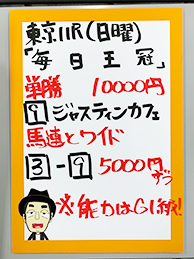 東京11R(日曜)
「毎日王冠」
単勝 10000円
9 ジャスティンカフェ
馬連とワイド
3-9 5000円ずつ
※能力はG1級!